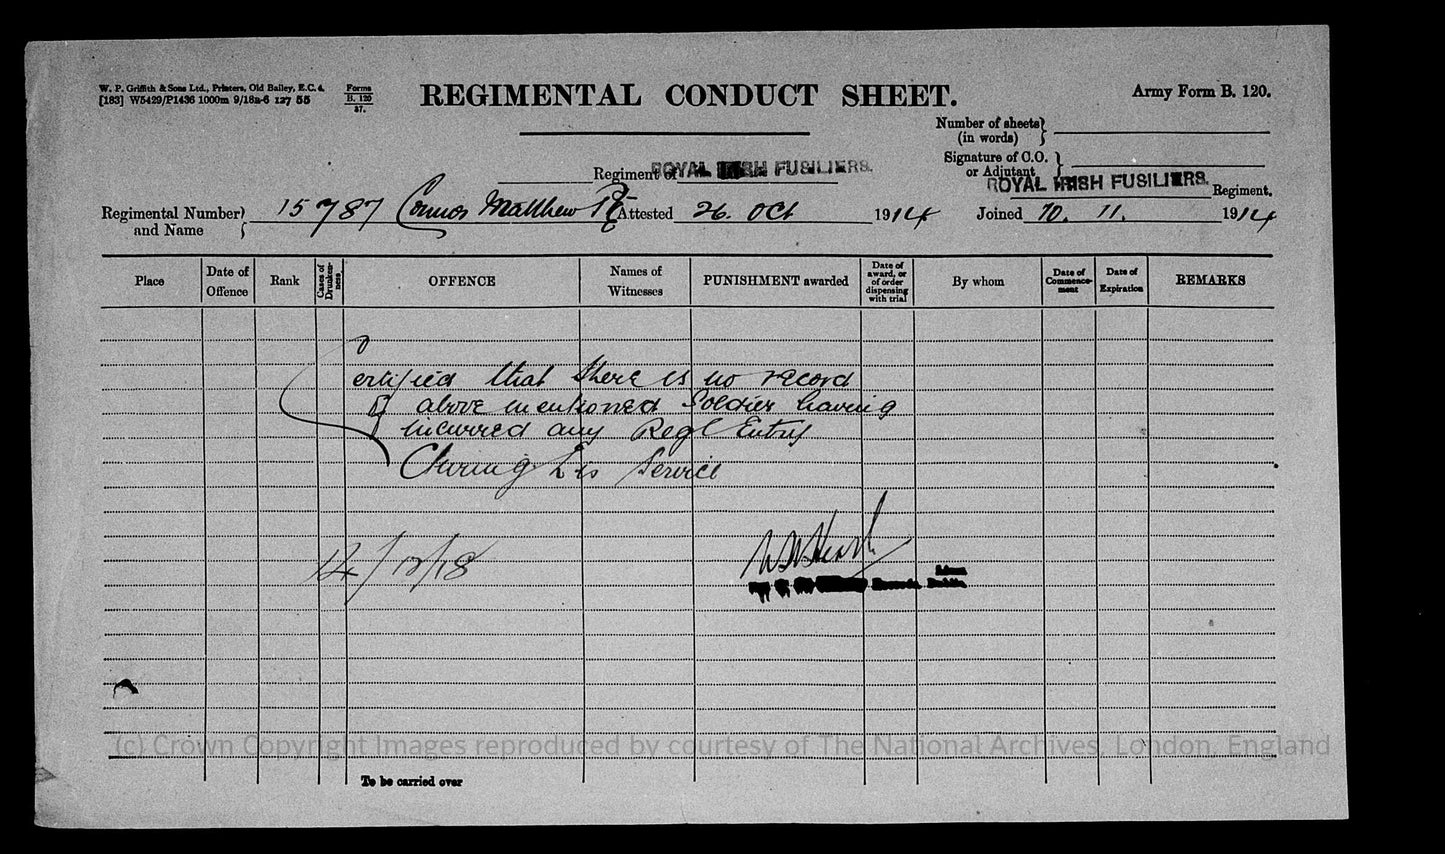 W. P. Griffith & Sons Ltd., Printers, Old Bailey, E.C.4.
[183] W5429/P1436 1000m 9/18a-6 127 55
Forms
B. 120
37.
REGIMENTAL CONDUCT SHEET.
Army Form B. 120.
Number of sheets
(in words)
Signature of C.O.
or Adjutant
Regiment of ROYAL IRISH FUSILIERS.
ROYAL IRISH FUSILIERS. Regiment.
Regimental Number
and Name
15787 Connor Matthew Pte Attested 26. Oct 1914 Joined 10. 11. 1914
Place
Date of
Offence
Rank
Cases of
Drunken-
ness
OFFENCE
Names of
Witnesses
PUNISHMENT awarded
Date of
award, or
of order
dispensing
with trial
By whom
Date of
Commence-
ment
Date of
Expiration
REMARKS
Certified that there is no record
of above mentioned Soldier having
incurred any Regl Entry
During his Service
14/12/18
To be carried over
(c) Crown Copyright Images reproduced by courtesy of The National Archives, London, England